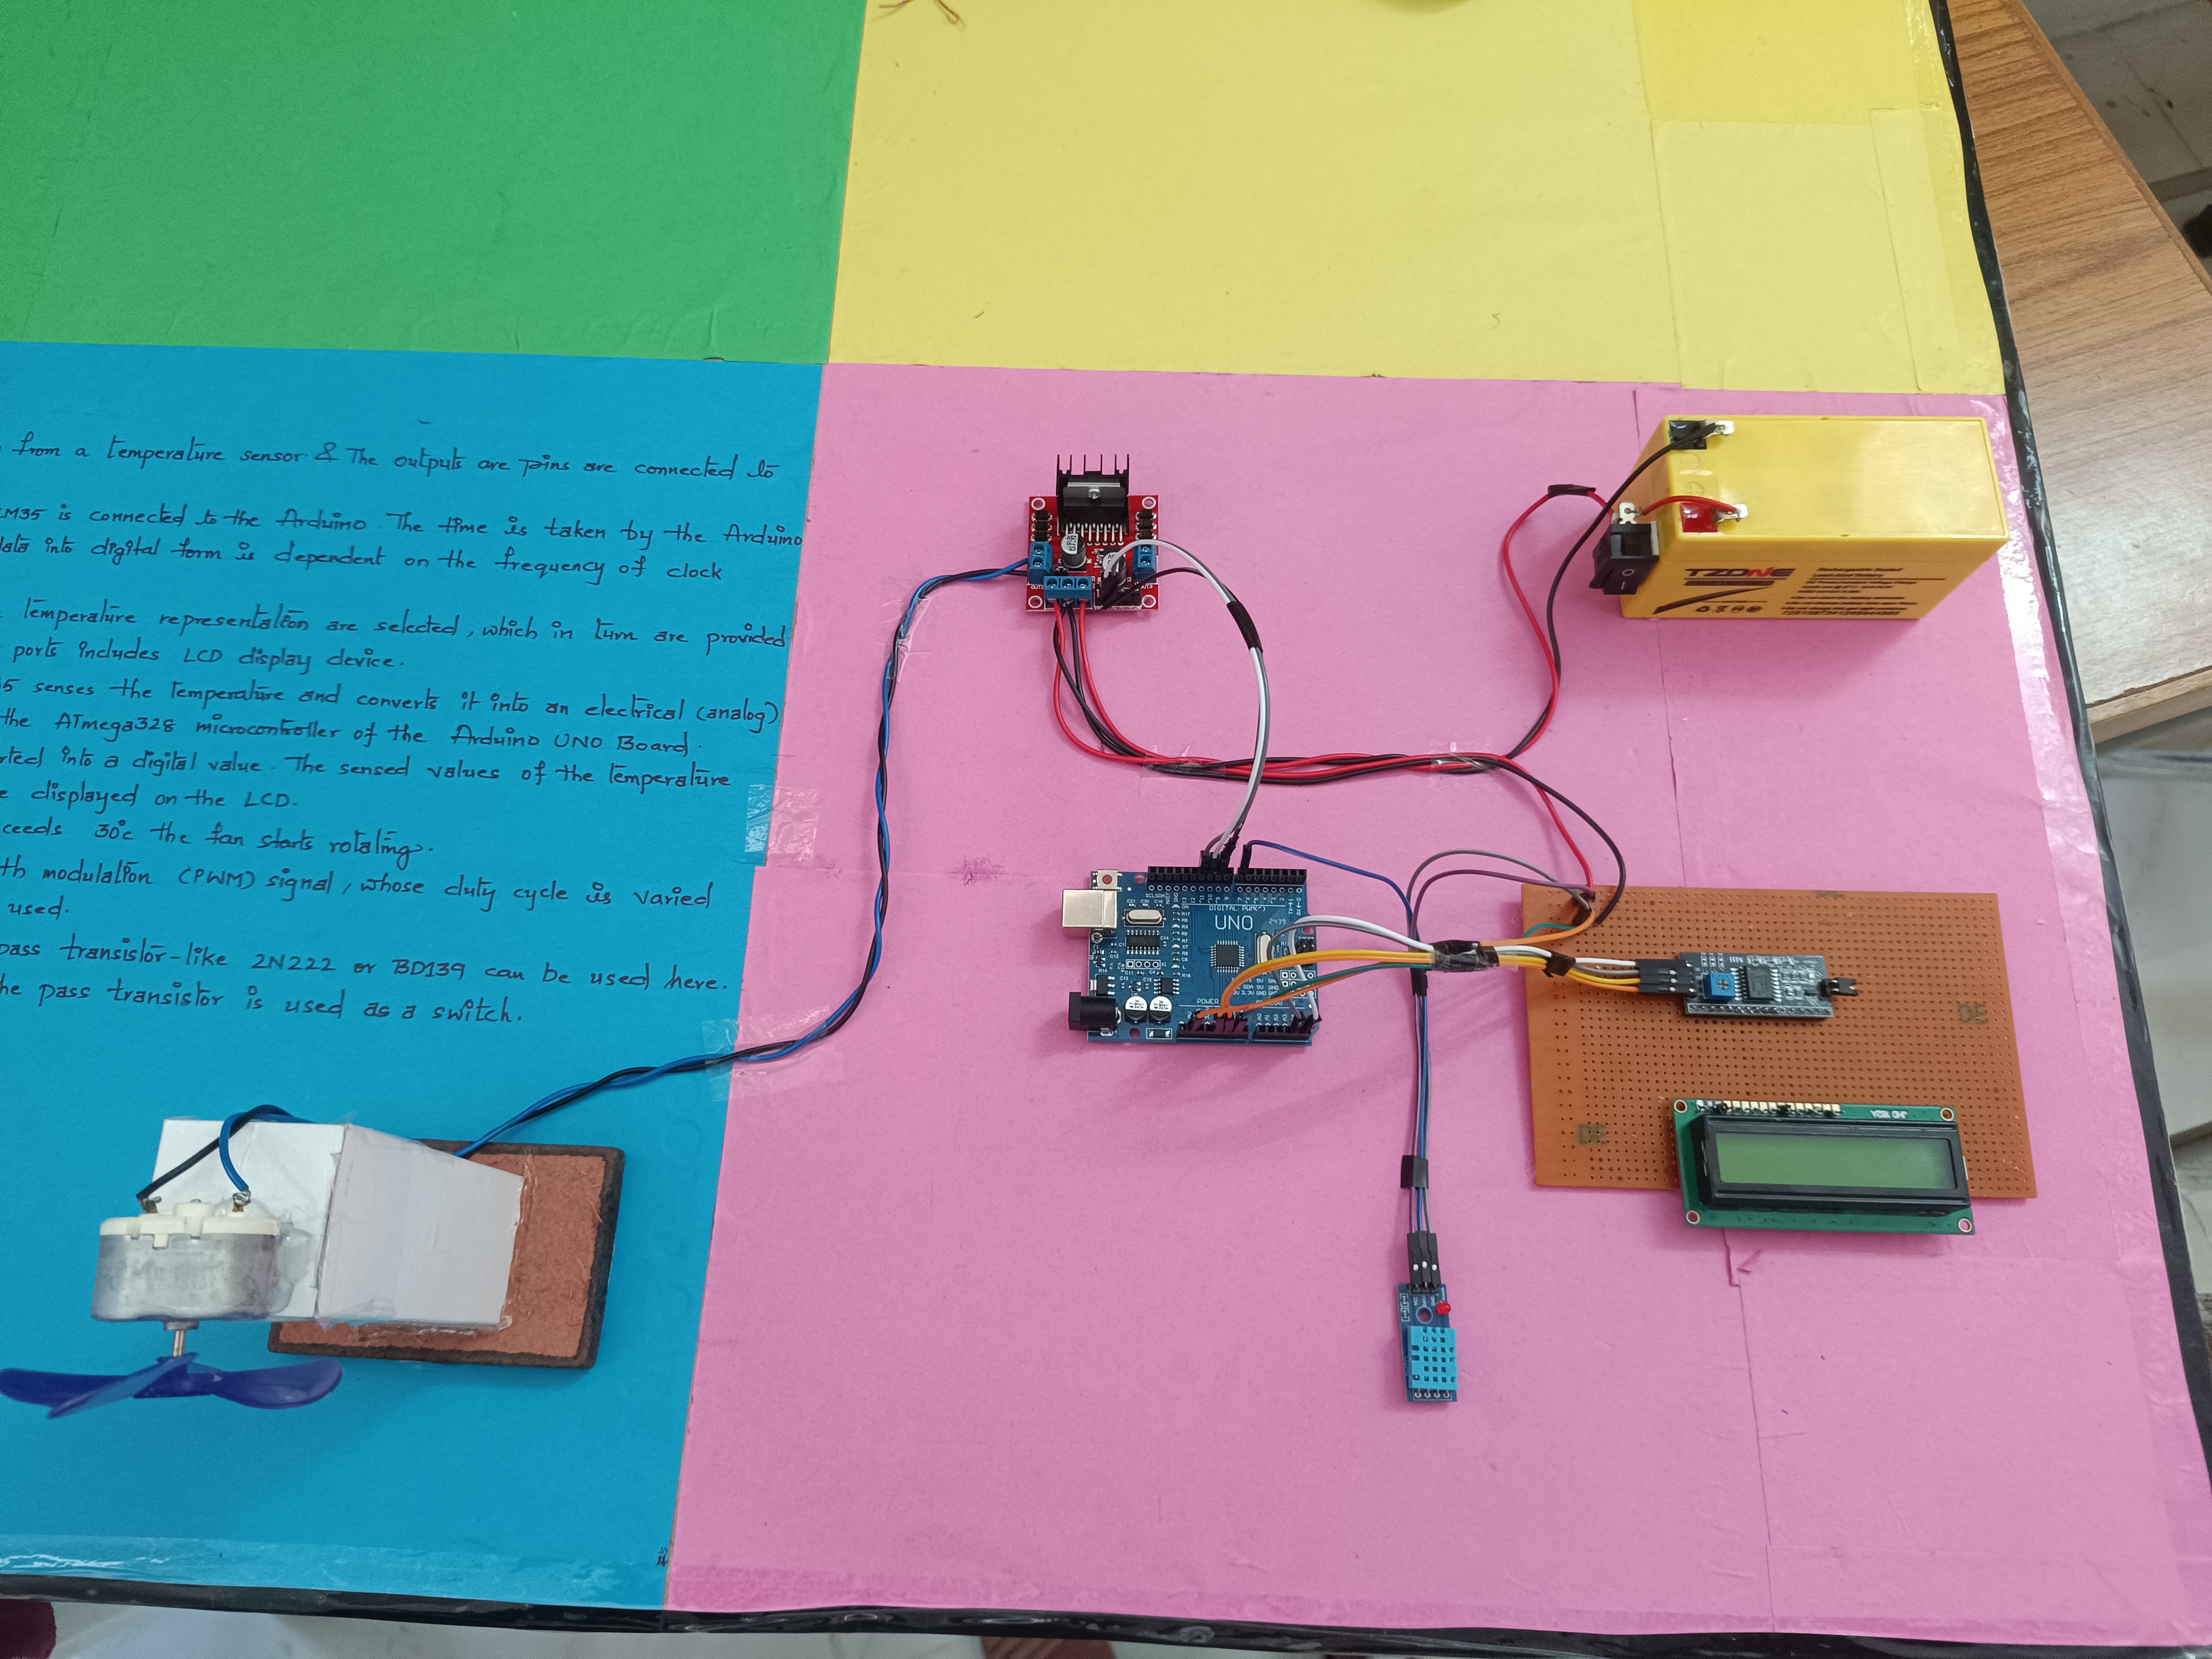 from a temperature sensor & The outputs are pins are connected to
LM35 is connected to the Arduino. The time is taken by the Arduino
data into digital form is dependent on the frequency of clock
temperature representation are selected, which in turn are provided
ports includes LCD display device.
senses the temperature and converts it into an electrical (analog)
the ATmega328 microcontroller of the Arduino UNO Board.
into a digital value. The sensed values of the temperature
displayed on the LCD.
30°c the fan starts rotating.
modulation (PWM) signal, whose duty cycle is varied
used.
pass transistor-like 2N222 or BD139 can be used here.
he pass transistor is used as a switch.
TZONE
DIGITAL PWM~)
UNO
2439
POWER
JHD 162A
DE
DE